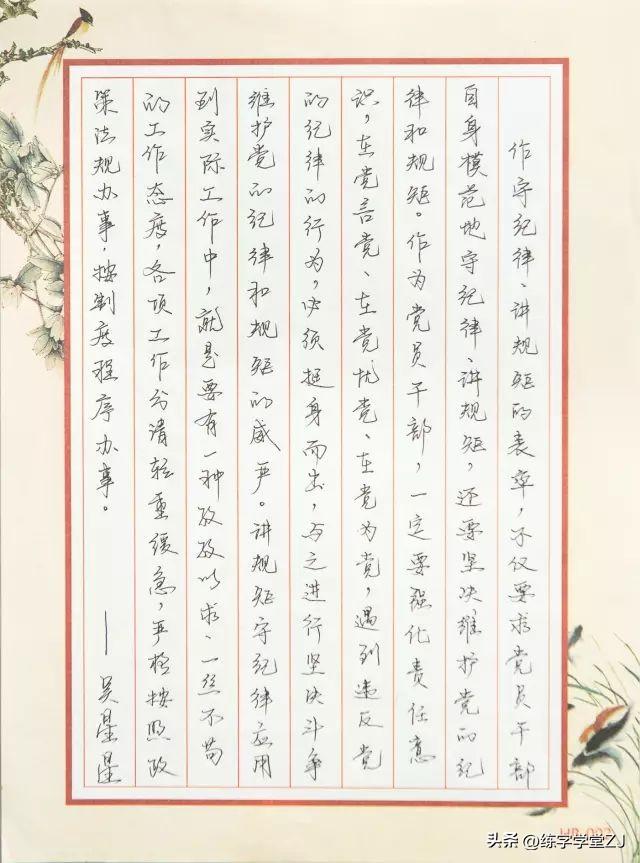 作守纪律、讲规矩的表率，不仅要求党员干部
自身模范地守纪律、讲规矩，还要坚决维护党的纪
律和规矩。作为党员干部，一定要强化责任意
识，在党言党、在党忧党、在党为党，遇到违反党
的纪律的行为，必须挺身而出，与之进行坚决斗争
维护党的纪律和规矩的威严。讲规矩守纪律应用
到实际工作中，就是要有一种孜孜以求、一丝不苟
的工作态度，各项工作分清轻重缓急，严格按照政
策法规办事，按制度程序办事。
——吴星星
HB-002
头条@练字学堂ZJ